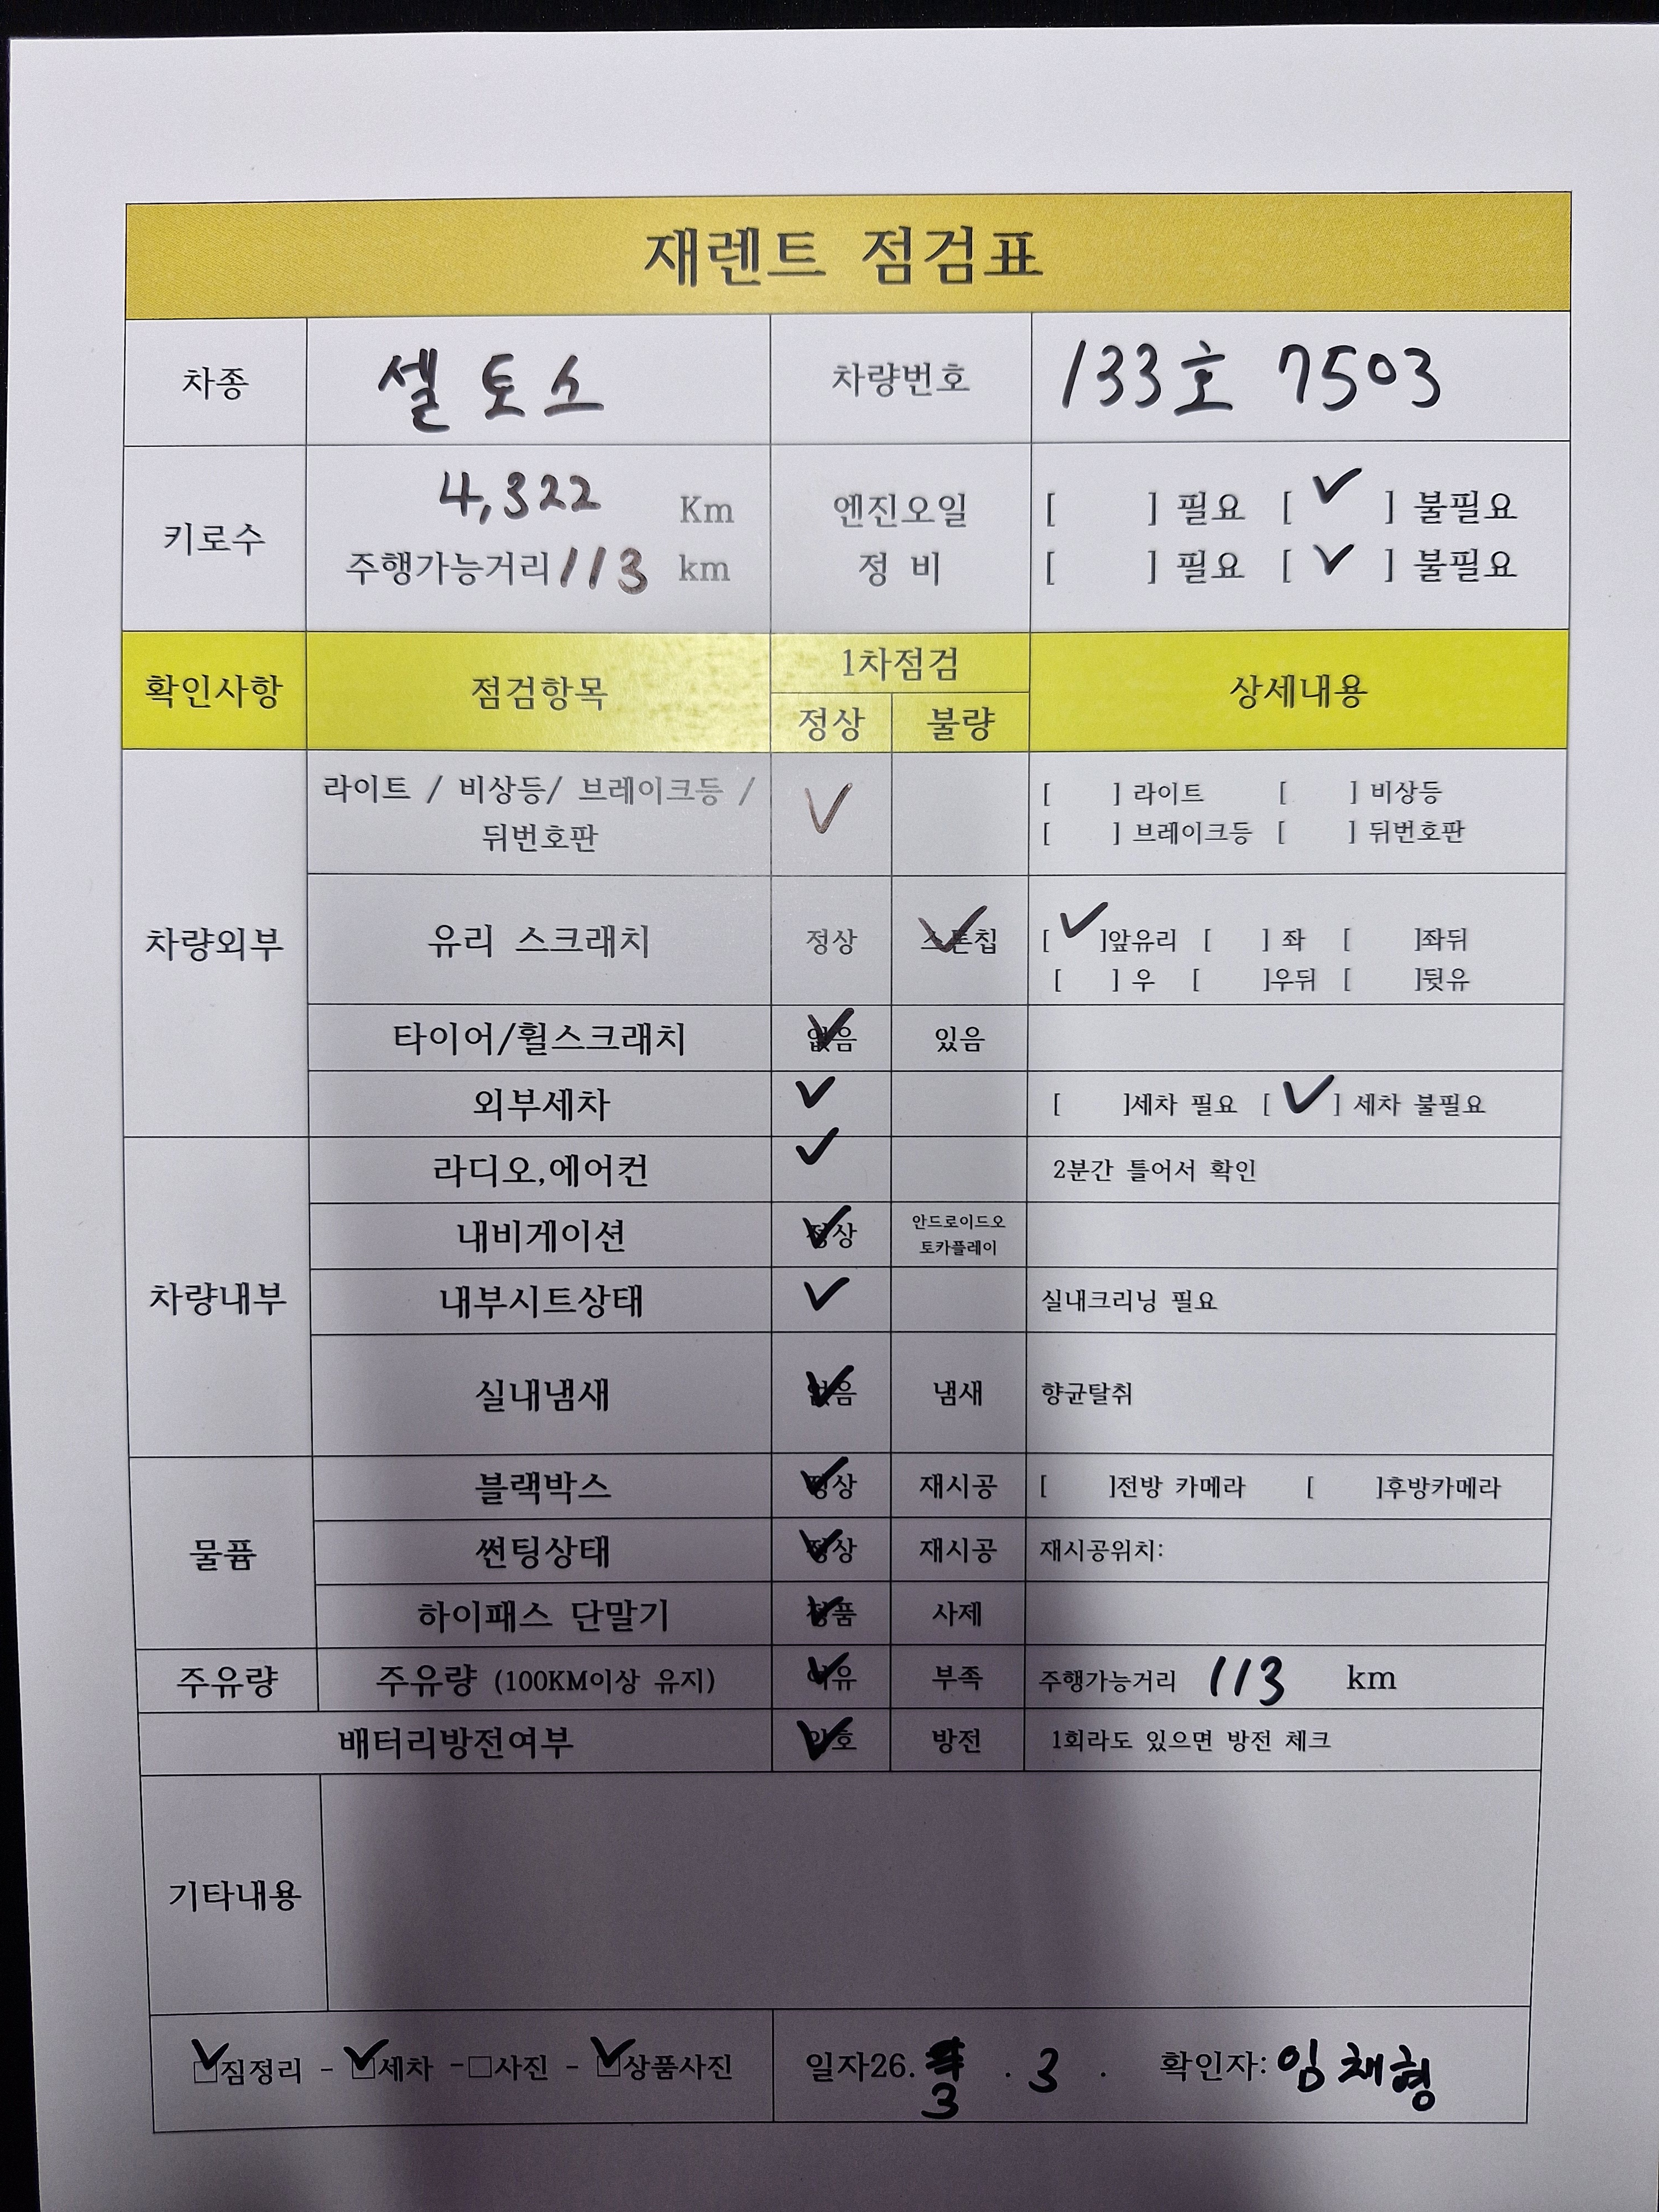 재렌트 점검표
차종 셀토스 차량번호 133호 7503
키로수 4,322 Km 엔진오일 [ ] 필요 [ ✓ ] 불필요
주행가능거리 113 km 정 비 [ ] 필요 [ ✓ ] 불필요
확인사항 점검항목 1차점검 상세내용
정상 불량
차량외부
라이트 / 비상등/ 브레이크등 / ✓ [ ] 라이트 [ ] 비상등
뒤번호판 [ ] 브레이크등 [ ] 뒤번호판
유리 스크래치 정상 스톤칩 ✓ [ ✓ ]앞유리 [ ] 좌 [ ]좌뒤
[ ] 우 [ ]우뒤 [ ]뒷유
타이어/휠스크래치 없음 ✓ 있음
외부세차 ✓ [ ]세차 필요 [ ✓ ] 세차 불필요
차량내부
라디오,에어컨 ✓ 2분간 틀어서 확인
내비게이션 정상 ✓ 안드로이드오
토카플레이
내부시트상태 ✓ 실내크리닝 필요
실내냄새 없음 ✓ 냄새 향균탈취
물품
블랙박스 정상 ✓ 재시공 [ ]전방 카메라 [ ]후방카메라
썬팅상태 정상 ✓ 재시공 재시공위치:
하이패스 단말기 정품 ✓ 사제
주유량 주유량 (100KM이상 유지) 여유 ✓ 부족 주행가능거리 113 km
배터리방전여부 양호 ✓ 방전 1회라도 있으면 방전 체크
기타내용
☑짐정리 - ☑세차 -□사진 - ☑상품사진 일자26. 3 . 3 . 확인자: 임채형